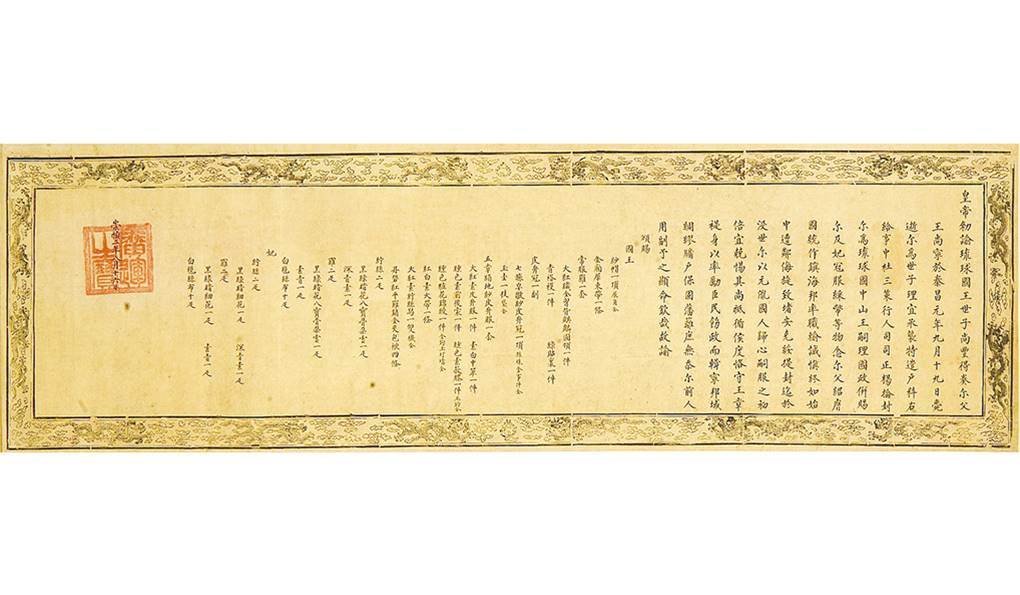 皇帝勅諭琉球國王世子尚豐得奏尔父
王尚寧於泰昌元年九月十九日薨
逝尔為世子理宜承襲特遣戶科右
給事中杜三策行人司司正楊掄封
尔為琉球國中山王嗣理國政併賜
尔及妃冠服綵幣等物念尔父紹膺
國統作鎮海邦率職輸誠慎終如始
中遘鄰侮旋致堵安克綏提封迄於
浸世尔以元胤國人歸心嗣服之初
倍宜兢惕其尚祗循侯度恪守王章
禔身以率勵臣民飭政而輯寧邦域
綢繆牖戶保固藩籬庶無忝尔前人
用副予之顯命欽哉故諭
頒賜
國王
紗帽一頂展角全
金廂犀束帶一條
常服羅一套
大紅織金胷背麒麟圓領一件
青褡𧞤一件 綠貼裏一件
皮弁冠一副
七旒皁皺紗皮弁冠一頂旒珠金事件全
玉圭一枝袋全
五章絹地紗皮弁服一套
大紅素皮弁服一件 素白中單一件
纁色素前後裳一件 纁色素蔽膝一件玉鈎全
纁色粧花錦綬一件金鈎玉玎璫全
紅白素大帶一條
大紅素紵絲舄一雙襪全
丹礬紅平羅銷金夾包袱四條
紵絲二疋
黑綠暗花八寶骨朶雲一疋
深青素一疋
羅二疋
黑綠暗花八寶骨朶雲一疋
素青一疋
白氁絲布十疋
妃
紵絲二疋
黑綠暗細花一疋 深青素一疋
羅二疋
黑綠暗細花一疋 素青一疋
白氁絲布十疋
廣運之寶
崇禎二年八月十六日